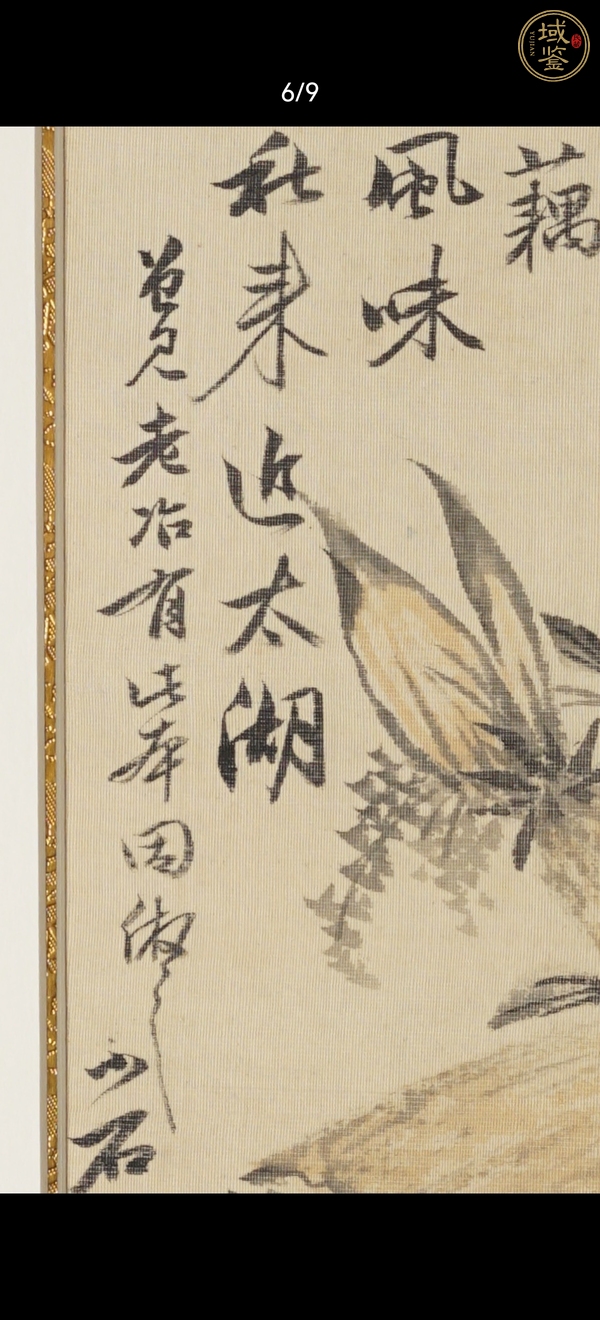 域鉴
YUJIAN
6/9
藕
風味
秋来近太湖
曽見老冶有此本因倣之
小石